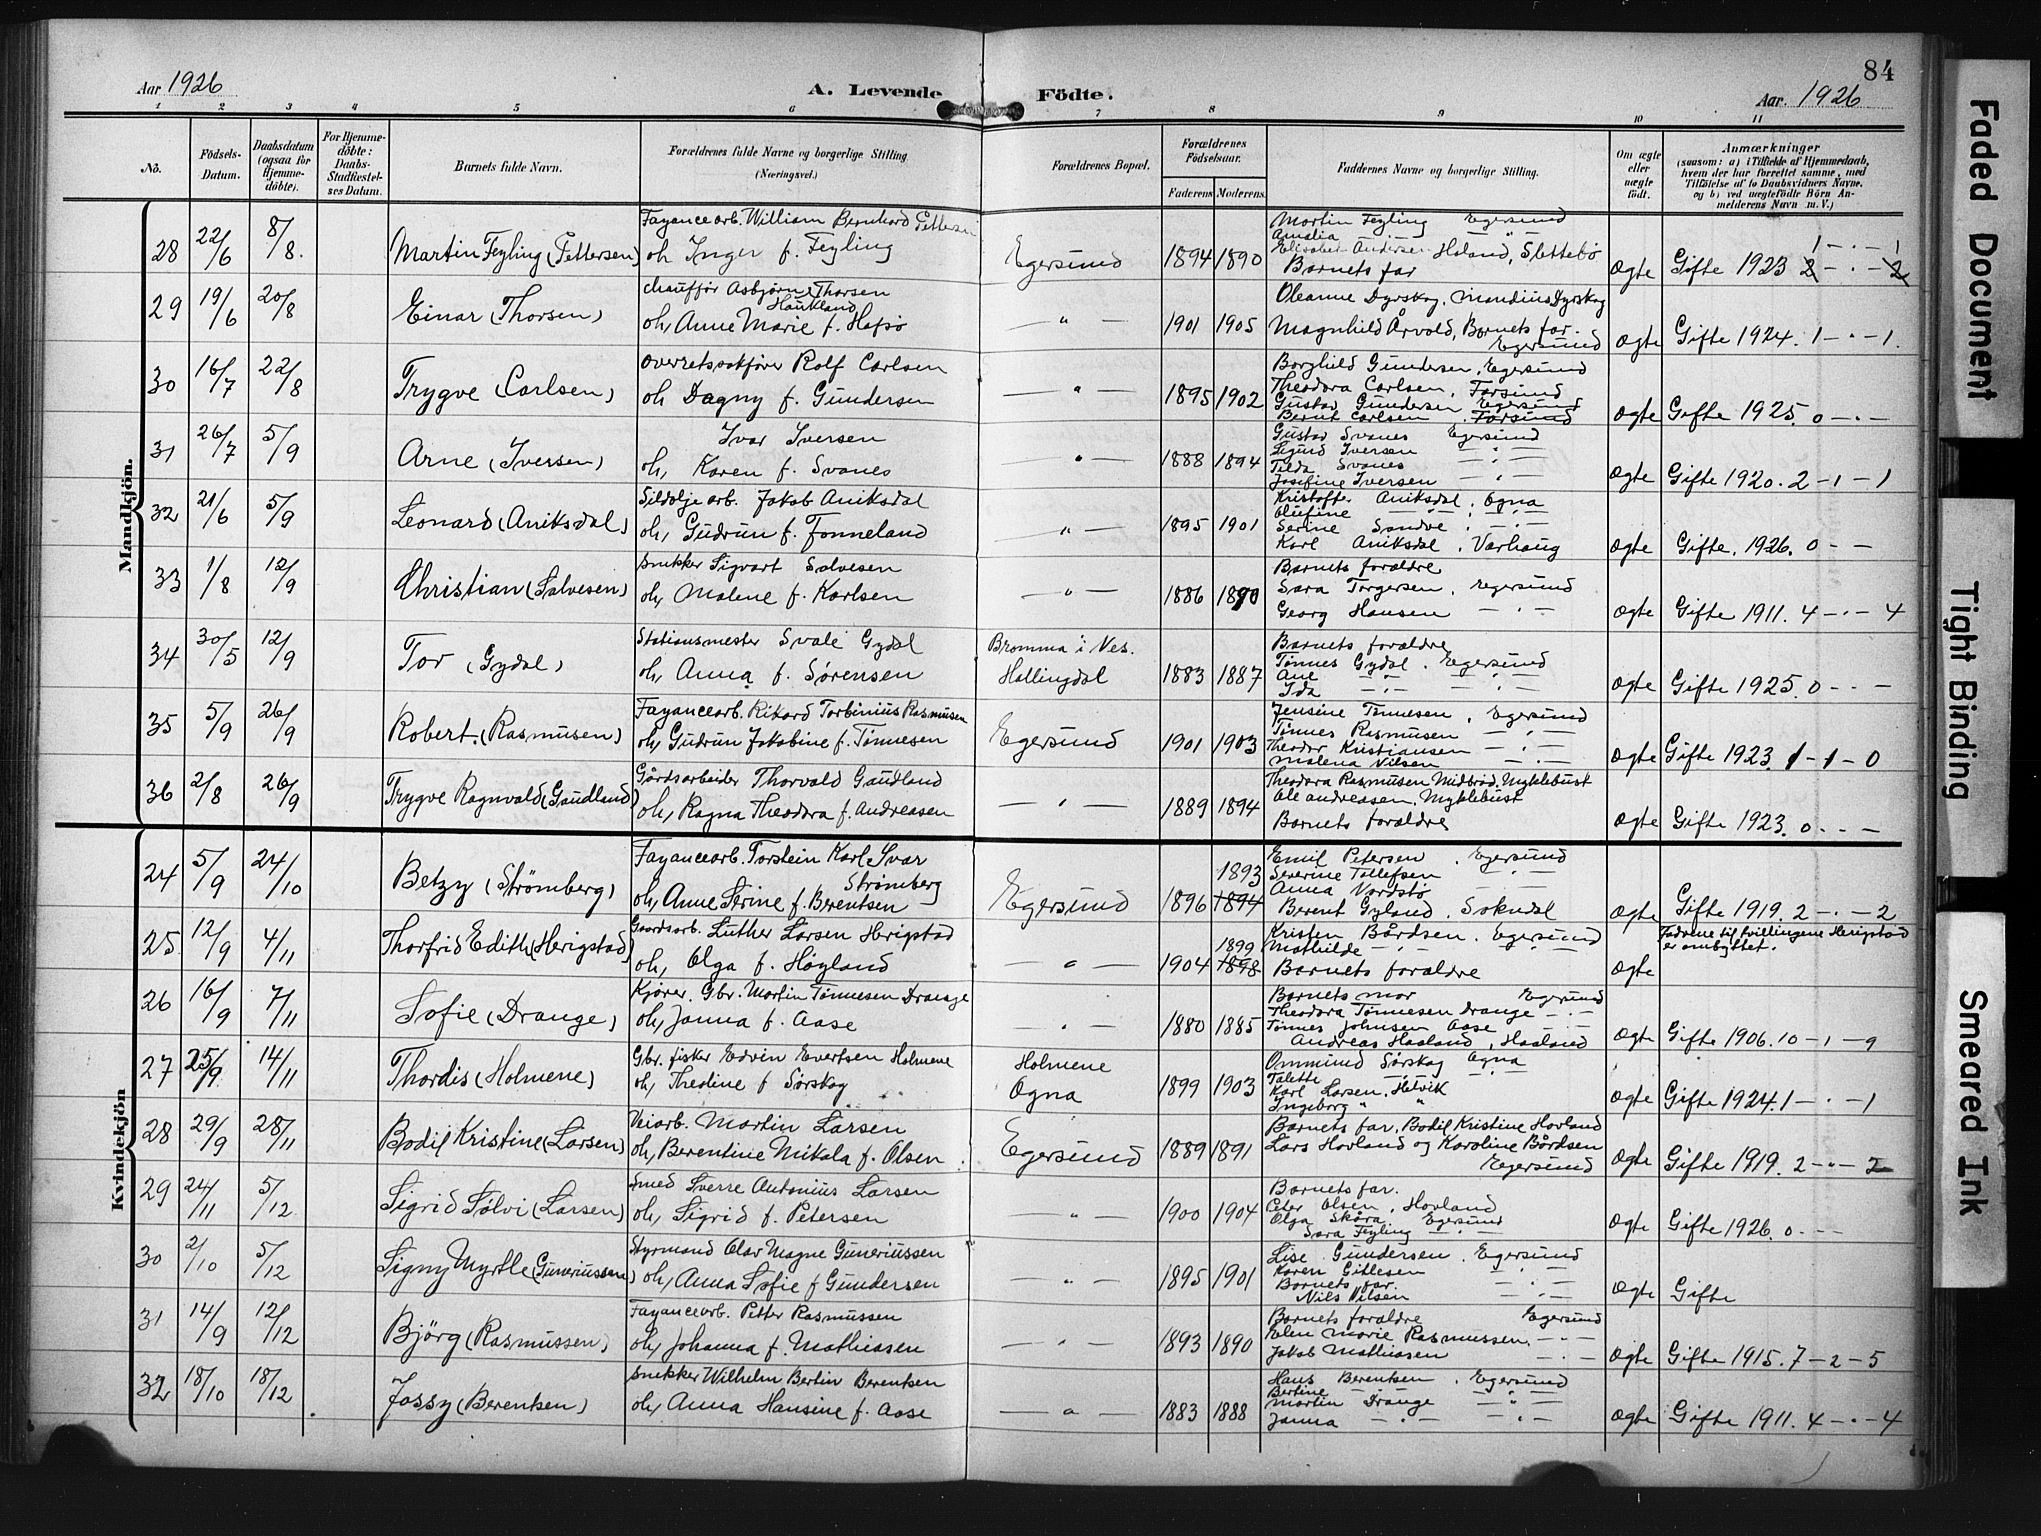 84
Aar 1926
A. Levende Födte.
Aar. 1926
1 2 3 4 5 6 7 8 9 10 11
No.
Födsels-Datum.
Daabsdatum (ogsaa for Hjemme-döbte).
For Hjemme-döbte: Daabs-Stadfæstel-ses Datum.
Barnets fulde Navn.
Forældrenes fulde Navne og borgerlige Stilling (Næringsvei.)
Forældrenes Bopæl.
Forældrenes Födselsaar.
Faderens Moderens
Faddernes Navne og borgerlige Stilling.
Om ægte eller uægte födt.
Anmærkninger
(saasom: a) i Tilfælde af Hjemmedaab, hvem der har forrettet samme, med Tilföielse af to Daabsvidners Navne, og b) ved uægtefödte Börn An-melderens Navn m. V.)
Mandkjön.
28 22/6 8/8. Martin Feyling (Pettersen)
Fayancearb. William Bernhard Pettersen
oh Inger f. Feyling
Egersund 1894 1890
Martin Feyling Egersund
Amalia — " —
Elisabet Andersen Heland, Slettebø
Barnets far
ægte Gifte 1923 2 — · — 2
1 — · — 1
29 19/6 20/8 Einar (Thorsen)
chauffør Asbjørn Thorsen
Haukland
oh, Anne Marie f. Hafsø
— " — 1901 1905
Oleanne Dyrskog, Mandius Dyrskog
Magnhild Årvold, Barnets far.
Egersund
ægte Gifte 1924. 1 — · — 1.
30 16/7 22/8 Trygve (Carlsen)
Overretssakfører Rolf Carlsen
oh Dagny f. Gundersen
— " — 1895 1902
Borghild Gundersen, Egersund
Theodora Carlsen, Farsund
Gustav Gundersen Egersund
Bernt Carlsen. Farsund
ægte Gifte 1925. 0 — · —
31 26/7 5/9 Arne (Iversen)
Ivar Iversen
oh, Karen f. Svanes
— " — 1888 1894
Gustav Svanes Egersund
Sigurd Iversen — · —
Tilda Svanes — · —
Josefine Iversen — · —
ægte Gifte 1920. 2 — 1 — 1
32 21/6 5/9 Leonard (Aniksdal)
Sildolje arb. Jakob Aniksdal
oh, Gudrun f. Fonneland
— " — 1895 1901
Kristoffer Aniksdal, Ogna
Olufine — · —
Serine Sandve — · —
Karl Aniksdal, Varhaug
ægte Gifte. 1926. 0 — —
33 1/8 12/9 Christian (Salvesen)
Snekker Sigvart Salvesen
oh, Malene f. Karlsen
— " — 1886 1890
Barnets forældre
Sara Torgersen, Egersund
Georg Hansen — · —
ægte Gifte 1911. 4 — · — 4
34 30/5 12/9 Tor (Gydal)
Stationsmester Svale Gydal
oh, Anna f. Sørensen
Bromma i Nes.
Hallingdal 1883 1887
Barnets forældre
Tønnes Gydal, Egersund
Ane — · —
Ida — · —
ægte Gifte 1925. 0 — · —
35 5/9 26/9 Robert. (Rasmusen)
Fayancearb. Rikard Torbinius Rasmusen
oh, Gudrun Jakobine f. Tønnesen
Egersund 1901 1903
Jensine Tønnesen, Egersund
Tønnes Rasmusen — · —
Theodor Kristiansen — · —
Malena Nilsen — · —
ægte Gifte 1923. 1 — 1 — 0
36 2/8 26/9 Trygve Ragnvald (Gaudland)
Gårdsarbeider Thorvald Gaudland
oh, Ragna Theodora f. Andreasen
— " — 1889 1894
Theodora Rasmusen Midbrød, Myklebust
Ole Andreasen, Myklebust
Barnets forældre
ægte Gifte 1923. 0 — · —
Kvindekjön
24 5/9 24/10 Betzy (Strömberg)
Fayancearb. Torstein Karl Ivar
Strömberg
oh, Anne Serine f. Berentsen
Egersund 1896 1894
1893
Emil Petersen, Egersund
Severine Tollefsen — · —
Anna Nordstø — · —
Berent Gyland, Sokndal
ægte Gifte 1919. 2 — · — 2
25 12/9 4/11 Thorfrid Edith (Herigstad)
Gaardsarb. Luther Larsen Herigstad
oh, Olga f. Høyland
— " — 1904 1898
1899
Kristen Bårdsen. Egersund
Mathilde — · —
Barnets forældre
ægte
Fadrene til tvillingene Herigstad
er ombyttet.
26 16/9 7/11 Sofie (Drange)
Kjører. Gbr. Martin Tønnesen Drange
oh, Janna f. Aase
— " — 1880 1885
Barnets mor Egersund
Theodora Tønnesen Drange — · —
Tønnes Johnsen Aase — · —
Andreas Haaland, Haaland
ægte Gifte 1906. 10 — 1 — 9
27 25/9 14/11 Thordis (Holmene)
Gbr. fisker Edvin Evertsen Holmene
oh, Theoline f Sörskog
Holmene
Ogna 1899 1903
Ommund Sörskog Ogna
Talette — · —
Karl Larsen, Hetvik
Ingeborg " "
ægte Gifte 1924. 1 — · — 1
28 29/9 28/11 Bodil Kristine (Larsen)
Veiarb. Martin Larsen
oh, Berentine Mikala f. Olsen
Egersund 1889 1891
Barnets far, Bodil Kristine Hovland
Lars Hovland og Karoline Bårdsen
Egersund
ægte Gifte 1919. 2 — " — 2
29 24/11 5/12 Sigrid Sølvi (Larsen)
Smed Sverre Antonius Larsen
oh, Sigrid f. Petersen
— " — 1900 1904
Barnets far.
Peter Olsen, Hovland
Olga Skåra Egersund
Sara Feyling — · —
ægte Gifte 1926. 0 — · —
30 2/10 5/12 Signy Myrtle (Guneriussen)
Styrmand Olav Magne Guneriussen
oh, Anna Sofie f Gundersen
— " — 1895 1901
Lise Gundersen, Egersund
Karen Gitlesen — · —
Barnets far.
Nils Nilsen — · —
ægte Gifte
31 14/9 12/12 Björg (Rasmussen)
Fayancearb. Petter Rasmussen
oh, Johanna f. Mathiasen
— " — 1893 1890
Barnets forældre Egersund
Elen Marie Rasmussen. — · —
Jakob Mathiasen — · —
ægte Gifte 1915. 7 — 2 — 5
32 18/10 18/12 Jossy (Berentsen)
Snekker Wilhelm Bertin Berentsen
oh, Anna Hansine f. Aase
— " — 1883 1888
Hans Berentsen, Egersund
Bertine — · —
Martin Drange — " —
Janna — · —
ægte Gifte 1911. 4 — · — 4
Faded Document
Tight Binding
Smeared Ink